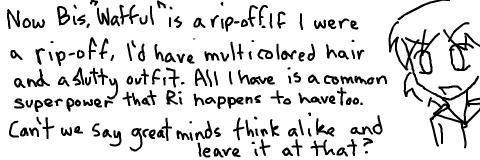 Now Bis, "Watful" is a rip-off. If I were
a rip-off, I'd have multicolored hair
and a slutty outfit. All I have is a common
superpower that Ri happens to have too.
Can't we say great minds think alike and
leave it at that?